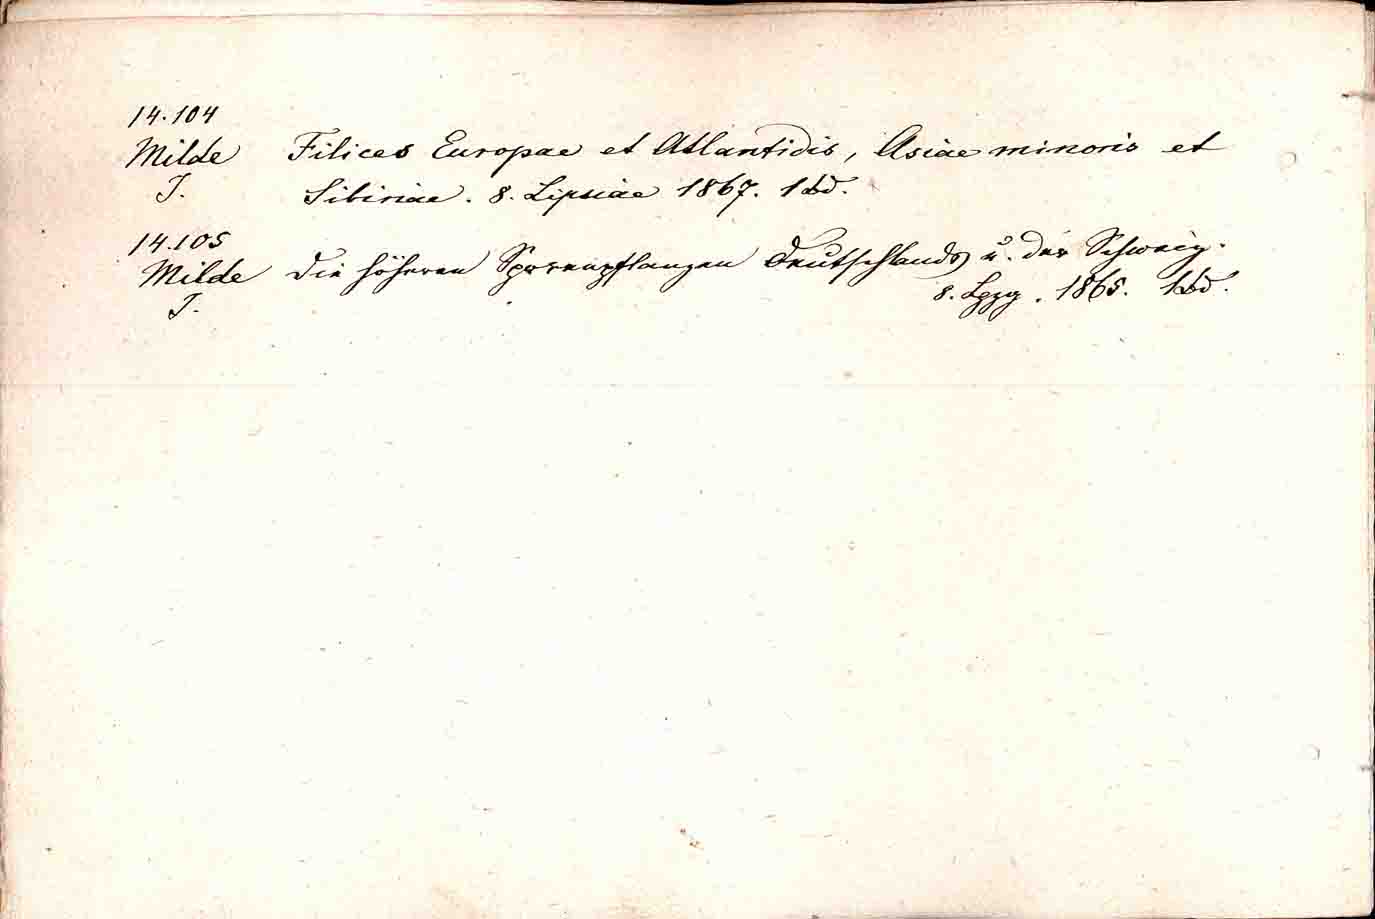 14.104
Milde Filices Europae et Atlantidis, Asiae minoris et
J. Sibiriae. 8. Lipsiae 1867. 1 bd.
14.105
Milde Die höheren Sporenpflanzen Deutschlands u. der Schweiz.
J. 8. Lpzg. 1865. 1 bd.